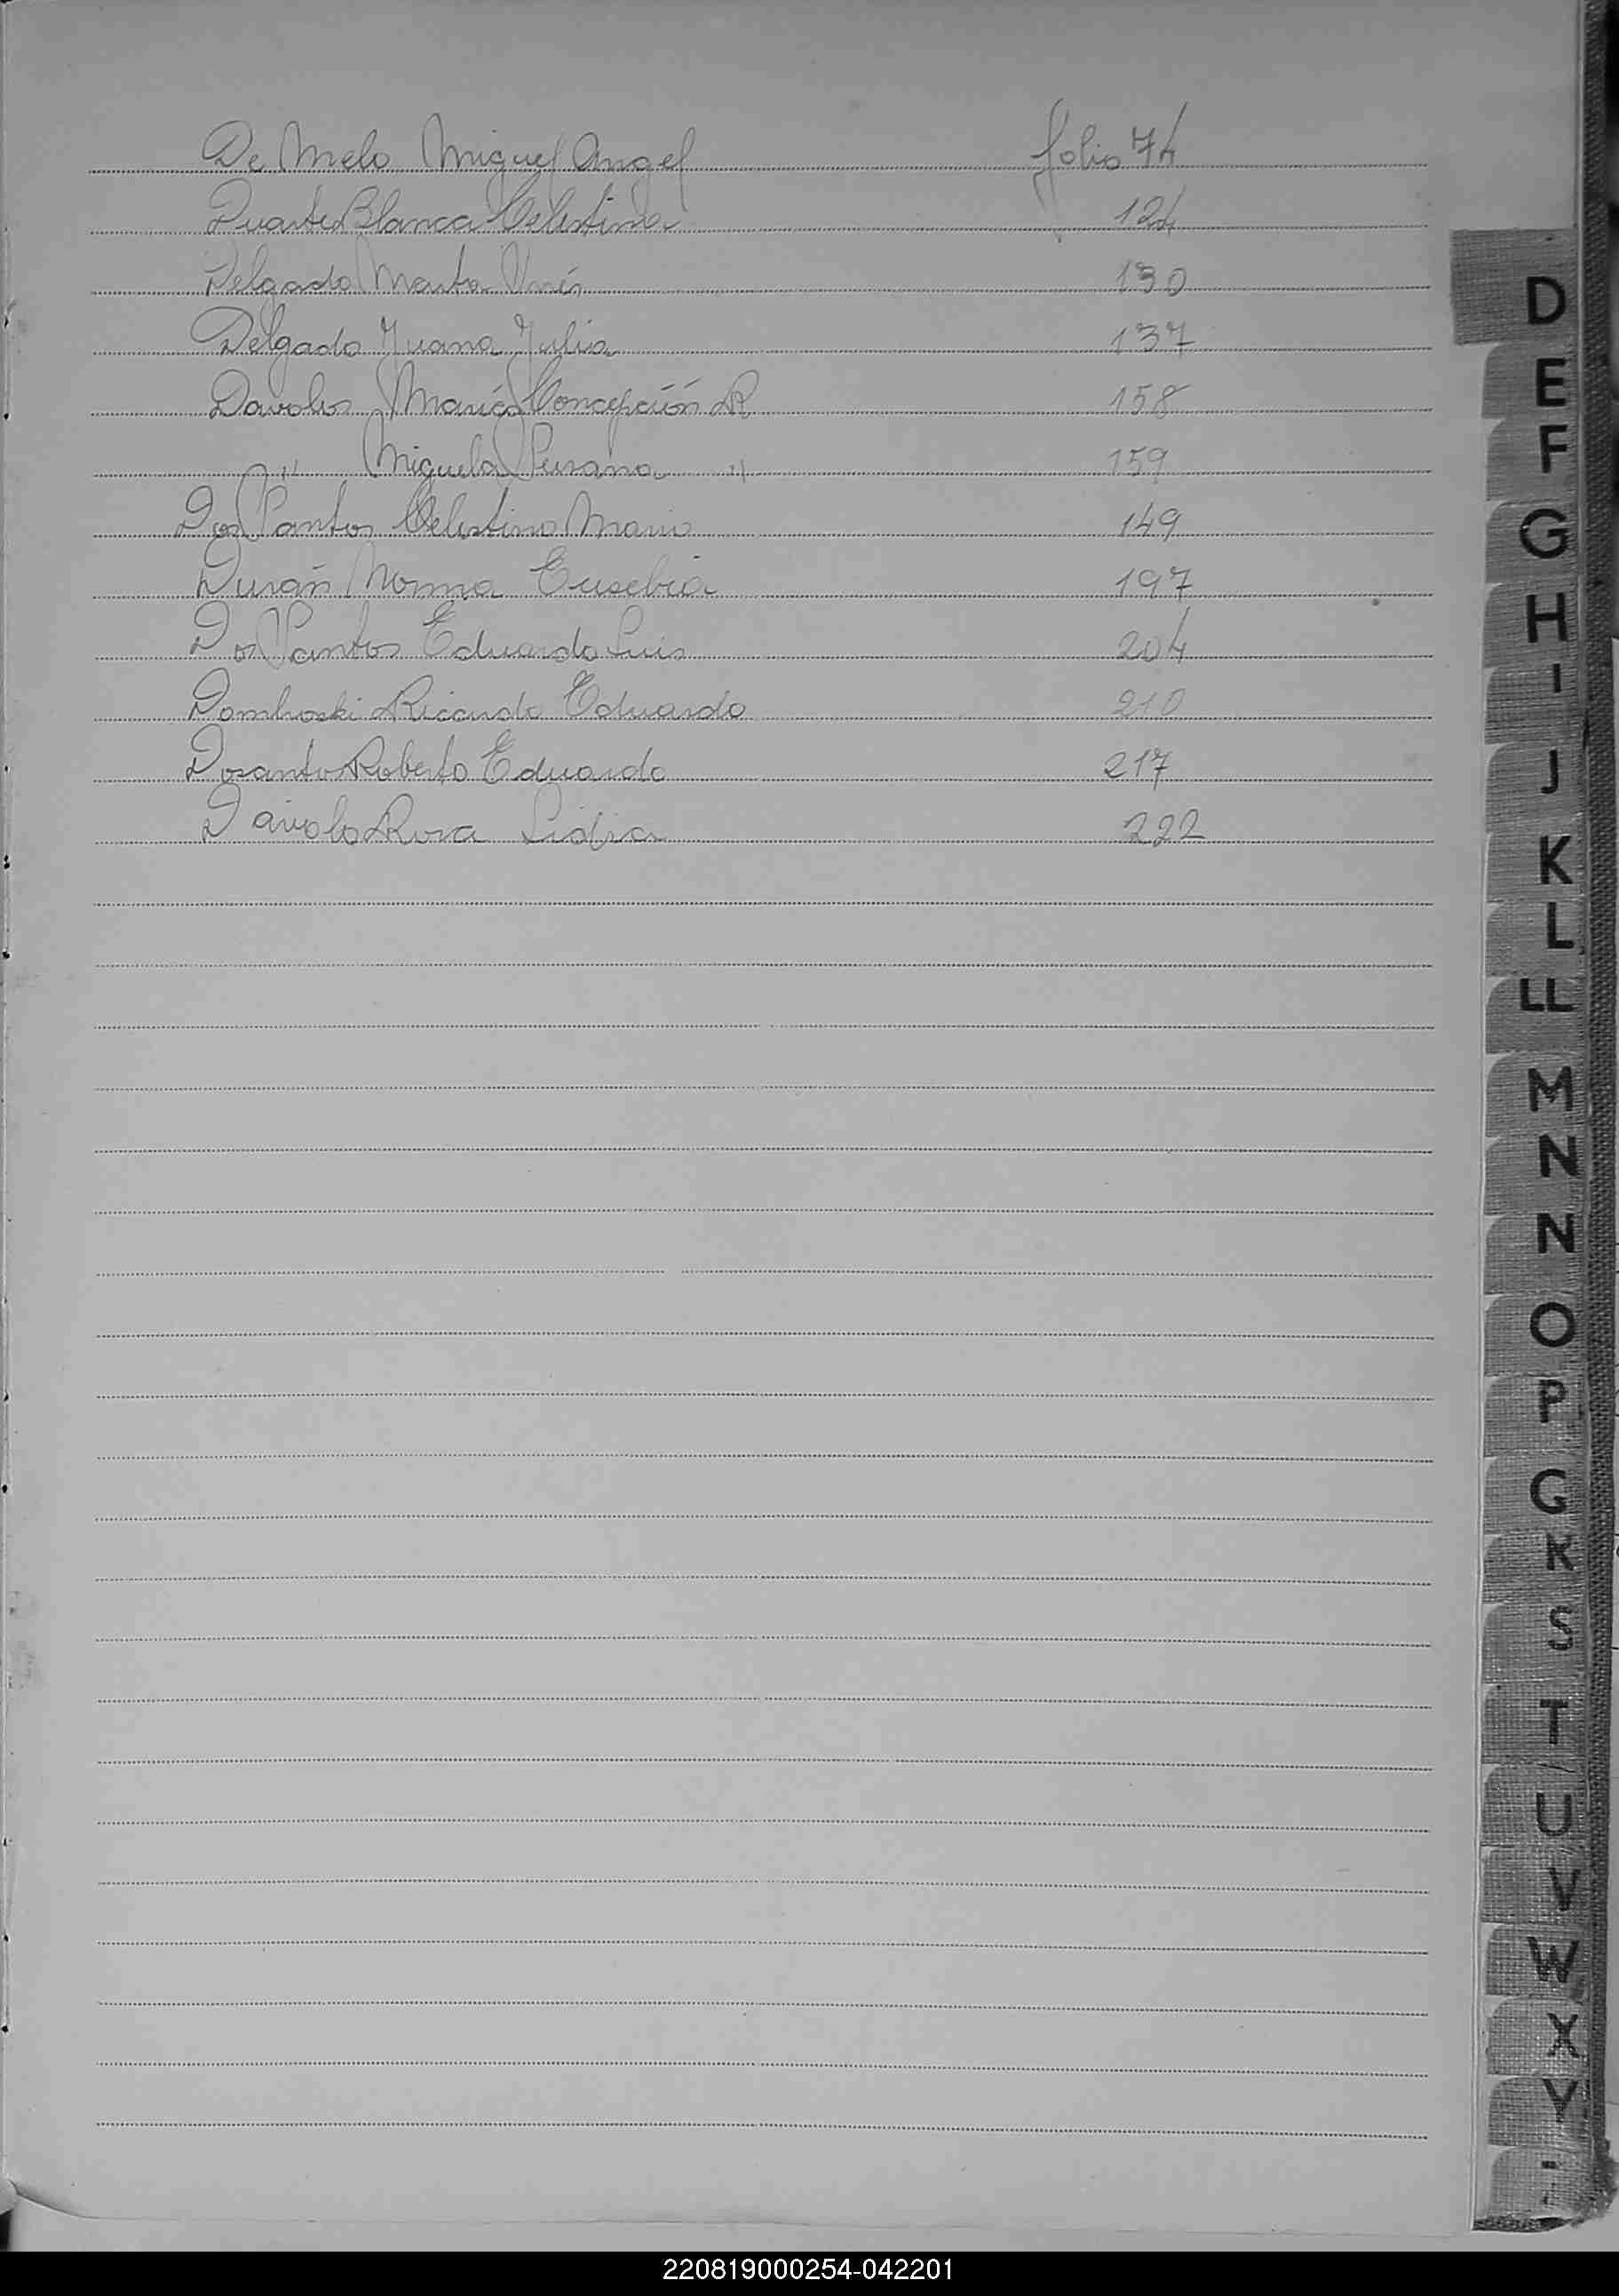 De Melo Miguel Angel folio 74
Duarte Blanca Celestina 124
Delgado Marta Inés 130
Delgado Juana Julia 137
Davolos María Concepción R 158
" Miguela Susana " 159
Dos Santos Celestino Mario 149
Durán Norma Eusebia 197
Dos Santos Eduardo Luis 204
Ricardo Eduardo 210
Dosantos Roberto Eduardo 217
Rosa Lidia 222
D
E
F
G
H
I
J
K
L
LL
M
N
N
O
P
Q
R
S
T
U
V
W
X
Y
220819000254-042201